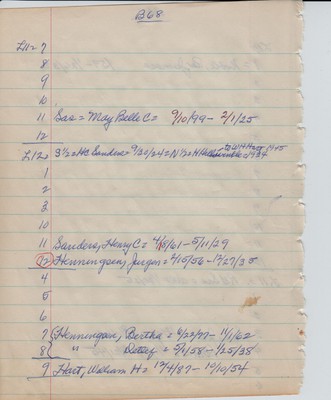 B68
L11= 7
8
9
10
11 Sas = May Belle C = 9/10/99 - 2/1/25
12
L12= S 1/2 = HC Sanders 9/30/24 = N 1/2 = to WH Hart 1945 1954
1
2
3
10
11 Sanders, Henry C = 4/5/61 - 5/11/29
12 Henningsen, Jurgen = 2/15/56 - 12/27/35
4
5
6
7 Henningsen, Bertha = 6/23/77 - 11/1/62
8 " Detlef = 5/1/58 - 1/25/38
9 Hart, William H = 12/4/87 - 10/10/54